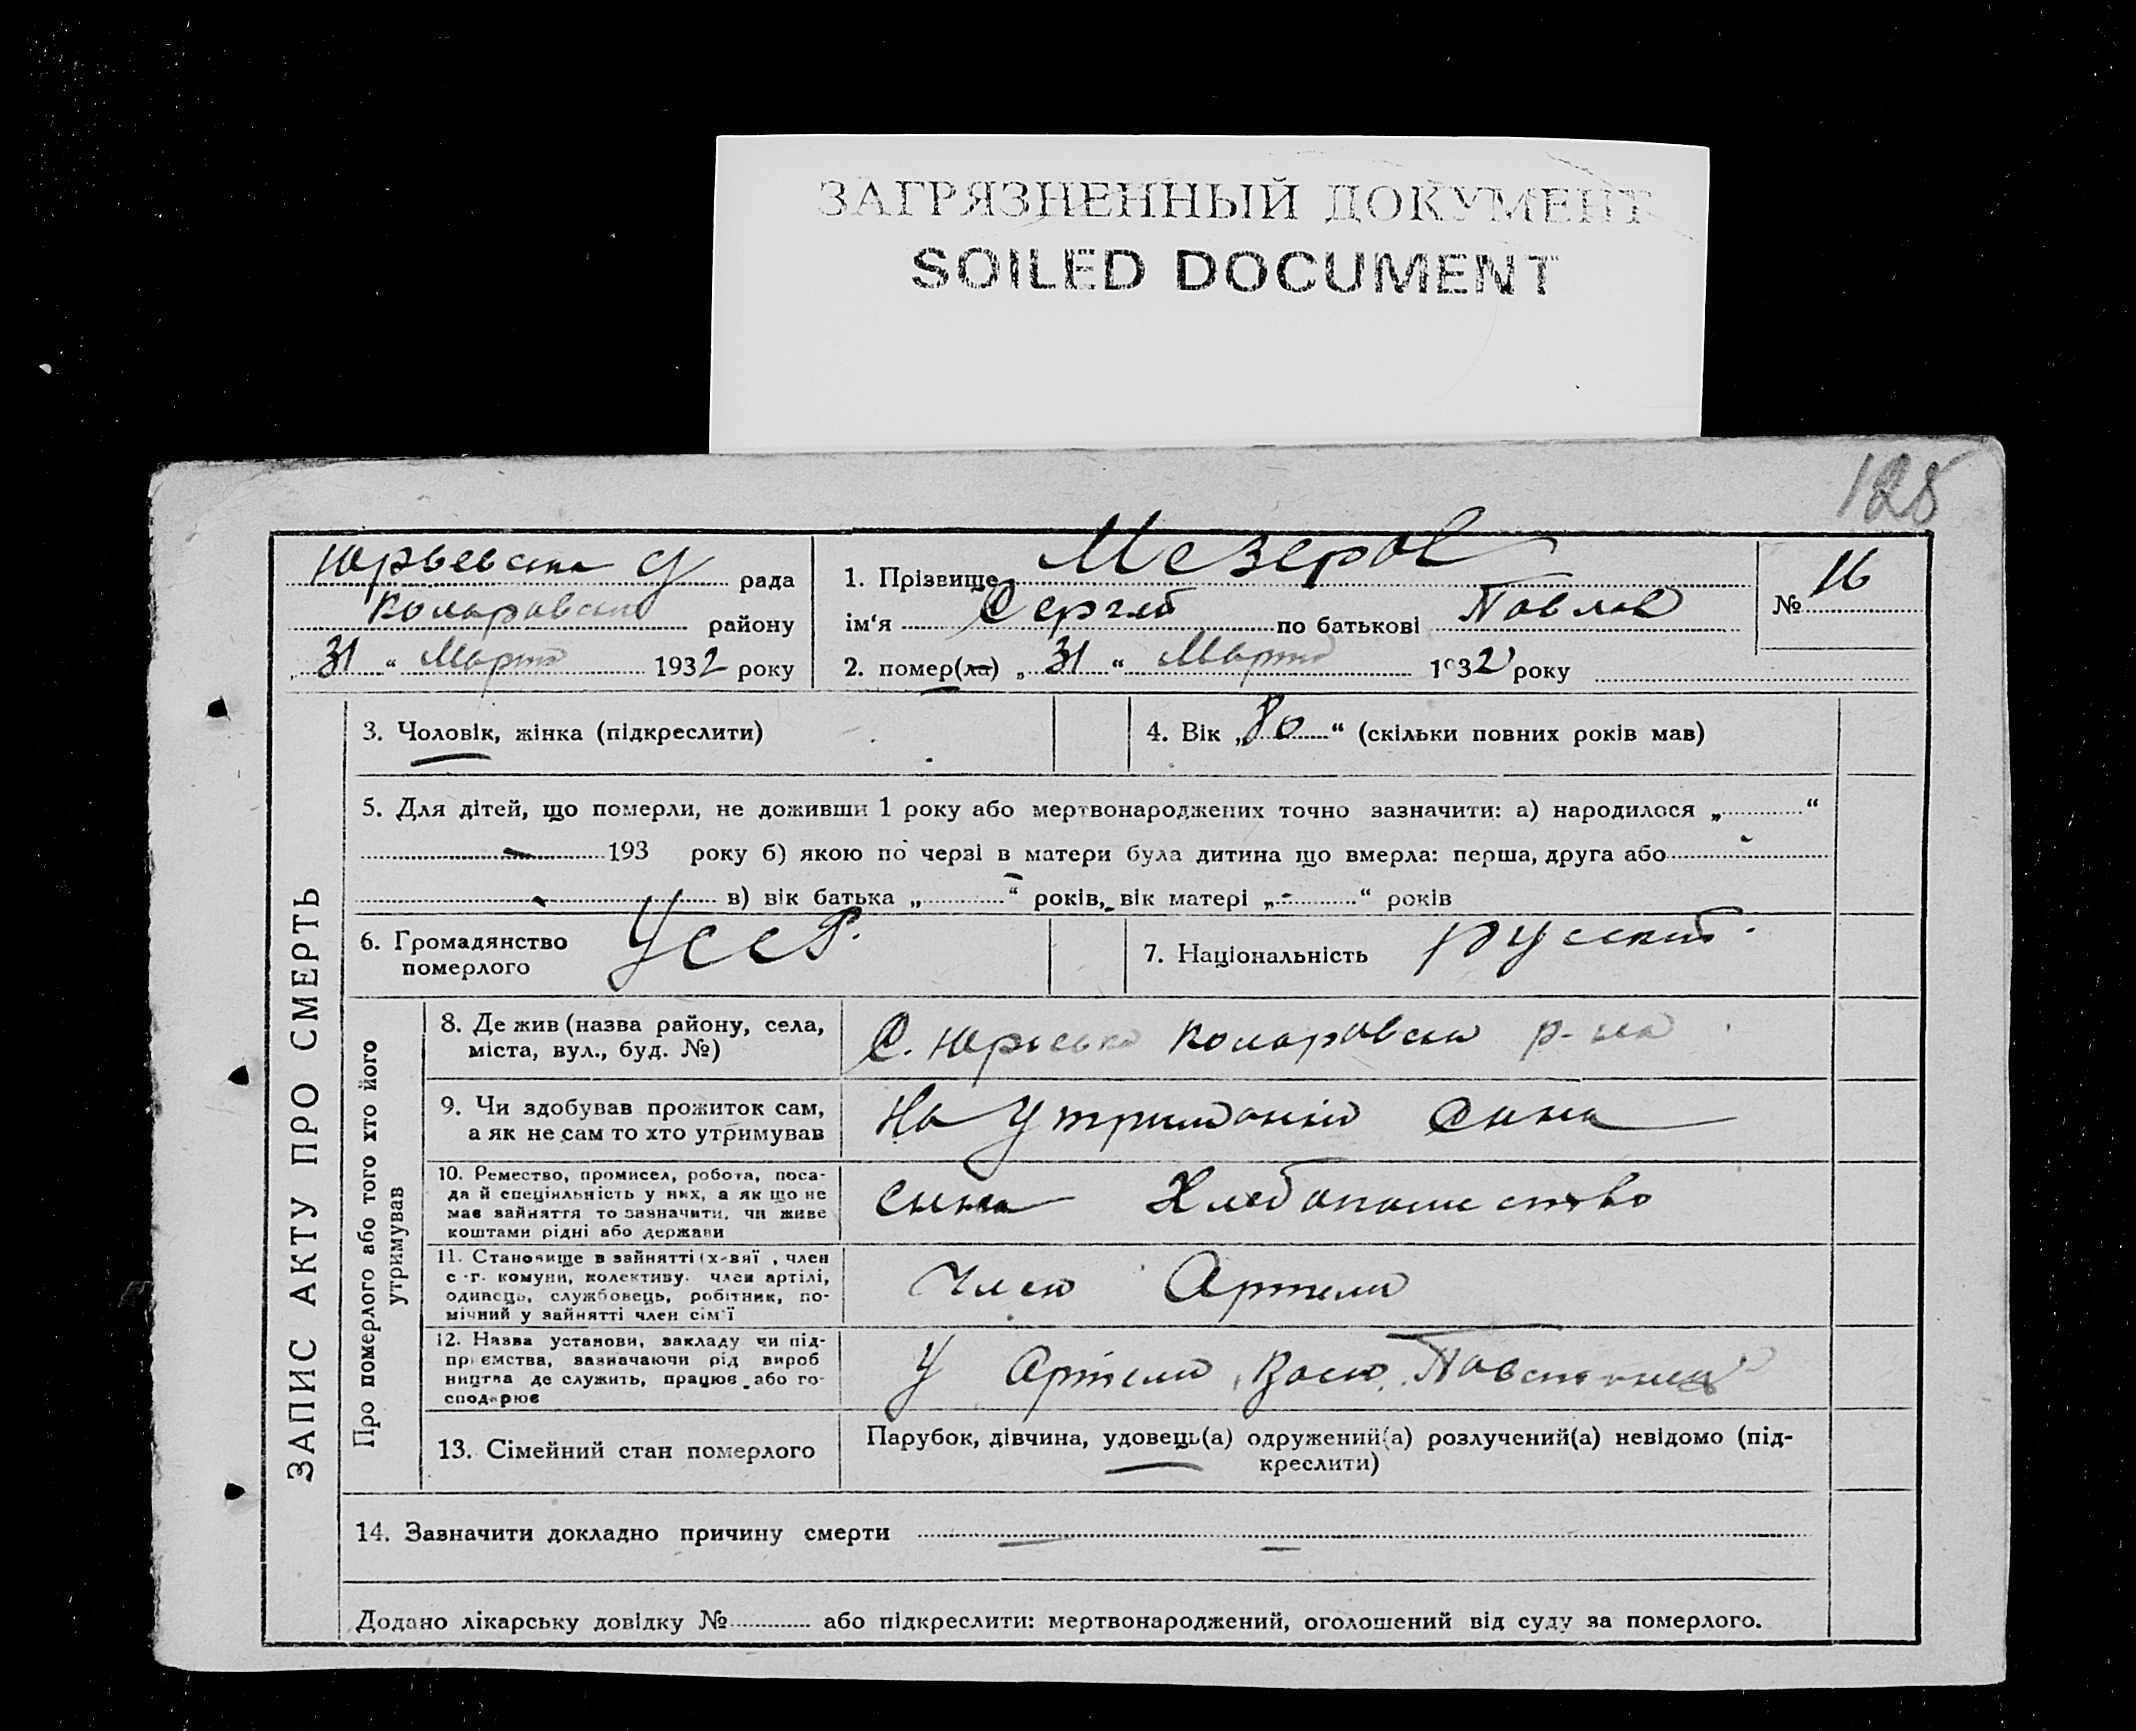 ЗАГРЯЗНЕННЫЙ ДОКУМЕНТ
SOILED DOCUMENT
128
Юрьевська С/ рада
Коларовськ району
31 “ Марта 1932 року
1. Прізвище Мезеров
ім‘я Сергей по батькові Павлов
2. помер(ла) „ 31 “ Марта 1932 року
№ 16
ЗАПИС АКТУ ПРО СМЕРТЬ
3. Чоловік, жінка (підкреслити)
4. Вік „ 80 “ (скільки повних років мав)
5. Для дітей, що померли, не доживши 1 року або мертвонароджених точно зазначити: а) народилося „ “
193 року б) якою по черзі в матери була дитина що вмерла: перша, друга або
в) вік батька „ “ років, вік матері „ - “ років
6. Громадянство померлого УССР.
7. Національність русский.
Про померлого або того хто його утримував
8. Де жив (назва району, села,
міста, вул., буд. №)
С. Юрьевка Коларовськ р-на
9. Чи здобував прожиток сам,
а як не сам то хто утримував
На утриманію Сина
10. Ремество, промисел, робота, поса-
да й спеціяльність у них, а як що не
має зайняття то зазначити, чи живе
коштами рідні або держави
сина Хлебопашество
11. Становище в зайнятті (х-вяї , член
с -г. комуни, колективу. член артілі,
одинець, службовець, робітник, по-
мічний у зайнятті член сім‘ї
Член Артели
12. Назва установи, закладу чи під-
приємства, зазначаючи рід вироб
ництва де служить, працює або го-
сподарює
У Артели
13. Сімейний стан померлого
Парубок, дівчина, удовець(а) одружений(а) розлучений(а) невідомо (під-
креслити)
14. Зазначити докладно причину смерти
Додано лікарську довідку № або підкреслити: мертвонароджений, оголошений від суду за померлого.